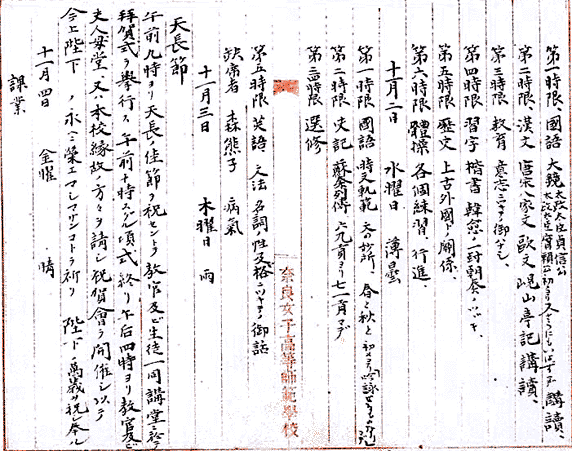 第一時限、國語 大鏡 太政大臣貞信公 太政大臣實頼公 講讀、
第二時限、漢文 唐宋八家文 歐文 峴山亭記 講讀、
第三時限、教育 意志ニツキ御話シ、
第四時限 習字 楷書
第五時限 歴文 上古外國ト關係、
第六時限 體操 各個練習、行進、
十一月二日 水曜日 薄曇
第一時限 國語 時文軌範
第二時限 史記 蘇秦列傳 六九頁ヨリ七一頁マデ
第三四時限 選修
奈良女子高等師範學校
第五時限 英語 文法 名詞、性及格ニツキテノ御話
缺席者 森熊子 病氣
十一月三日 木曜日 雨
天長節
午前九時ヨリ天長ノ佳節ヲ祝セントテ教官及ビ生徒一同講堂ニ於テ
拜賀式ヲ舉行ス 午前十時半頃式終リ午后四時ヨリ教官及ビ
夫人母堂、又、本校縁故ノ方々ヲ請シ祝賀會ヲ開催シ以テ
今上陛下ノ永ニ榮エマシマサンコトヲ祈リ 陛下ノ萬歳ヲ祝シ奉ル
十一月四日 金曜 晴
課業